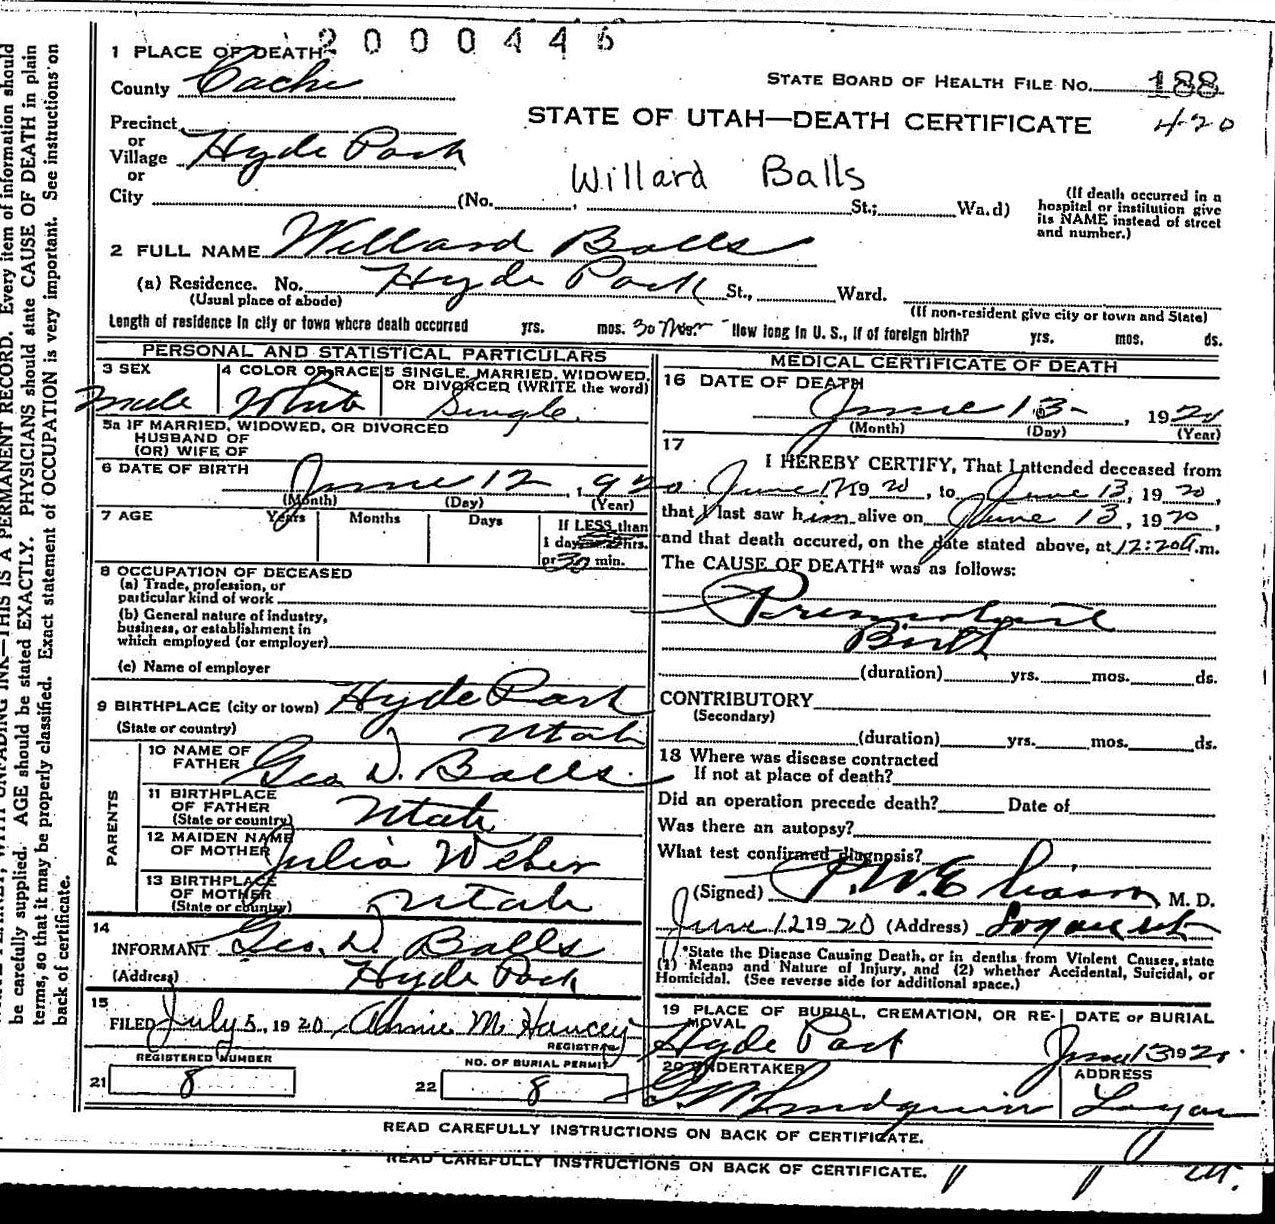 2000445
1 PLACE OF DEATH
County Cache
STATE BOARD OF HEALTH FILE NO. 188
420
STATE OF UTAH—DEATH CERTIFICATE
Precinct
or
Village Hyde Park
or
City (No. , St.; Wa.d)
Willard Balls
(If death occurred in a
hospital or institution give
its NAME instead of street
and number.)
2 FULL NAME Willard Balls
(a) Residence. No. Hyde Park St., Ward.
(Usual place of abode)
(If non-resident give city or town and State)
Length of residence in city or town where death occurred yrs. mos. 30 How long in U. S., if of foreign birth? yrs. mos. ds.
PERSONAL AND STATISTICAL PARTICULARS
3 SEX
Male
4 COLOR OR RACE
White
5 SINGLE, MARRIED, WIDOWED,
OR DIVORCED (WRITE the word)
Single
5a IF MARRIED, WIDOWED, OR DIVORCED
HUSBAND OF
(OR) WIFE OF
6 DATE OF BIRTH
June 12, 920
(Month) (Day) (Year)
7 AGE Years Months Days
If LESS than
1 day hrs.
or 30 min.
8 OCCUPATION OF DECEASED
(a) Trade, profession, or
particular kind of work
(b) General nature of industry,
business, or establishment in
which employed (or employer)
(c) Name of employer
9 BIRTHPLACE (city or town) Hyde Park
(State or country) Utah
PARENTS
10 NAME OF
FATHER Geo D. Balls
11 BIRTHPLACE
OF FATHER
(State or country) Utah
12 MAIDEN NAME
OF MOTHER Julia Weber
13 BIRTHPLACE
OF MOTHER
(State or country) Utah
14
INFORMANT Geo. D. Balls
(Address) Hyde Park
15
FILED July 5, 1920 Annie M. Hancey
REGISTRAR
REGISTERED NUMBER
21 8
NO. OF BURIAL PERMIT
22 8
MEDICAL CERTIFICATE OF DEATH
16 DATE OF DEATH
June 13-, 1920
(Month) (Day) (Year)
17
I HEREBY CERTIFY, That I attended deceased from
June 12 1920, to June 13, 1920,
that I last saw him alive on June 13, 1920,
and that death occured, on the date stated above, at 12:20 a.m.
The CAUSE OF DEATH* was as follows:
Premature
Birth
(duration) yrs. mos. ds.
CONTRIBUTORY
(Secondary)
(duration) yrs. mos. ds.
18 Where was disease contracted
If not at place of death?
Did an operation precede death? Date of
Was there an autopsy?
What test confirmed diagnosis?
(Signed) P.W. Eliason M. D.
June 12 1920 (Address) Logan Ut
*State the Disease Causing Death, or in deaths from Violent Causes, state
(1) Means and Nature of Injury, and (2) whether Accidental, Suicidal, or
Homicidal. (See reverse side for additional space.)
19 PLACE OF BURIAL, CREMATION, OR RE-
MOVAL
Hyde Park
DATE OF BURIAL
June 13 1920
20 UNDERTAKER
Lindquist
ADDRESS
Logan
Ut.
READ CAREFULLY INSTRUCTIONS ON BACK OF CERTIFICATE.
READ CAREFULLY INSTRUCTIONS ON BACK OF CERTIFICATE.
UNFADING INK—THIS IS A PERMANENT RECORD. Every item of information should
be carefully supplied. AGE should be stated EXACTLY. PHYSICIANS should state CAUSE OF DEATH in plain
terms, so that it may be properly classified. Exact statement of OCCUPATION is very important. See instructions on
back of certificate.